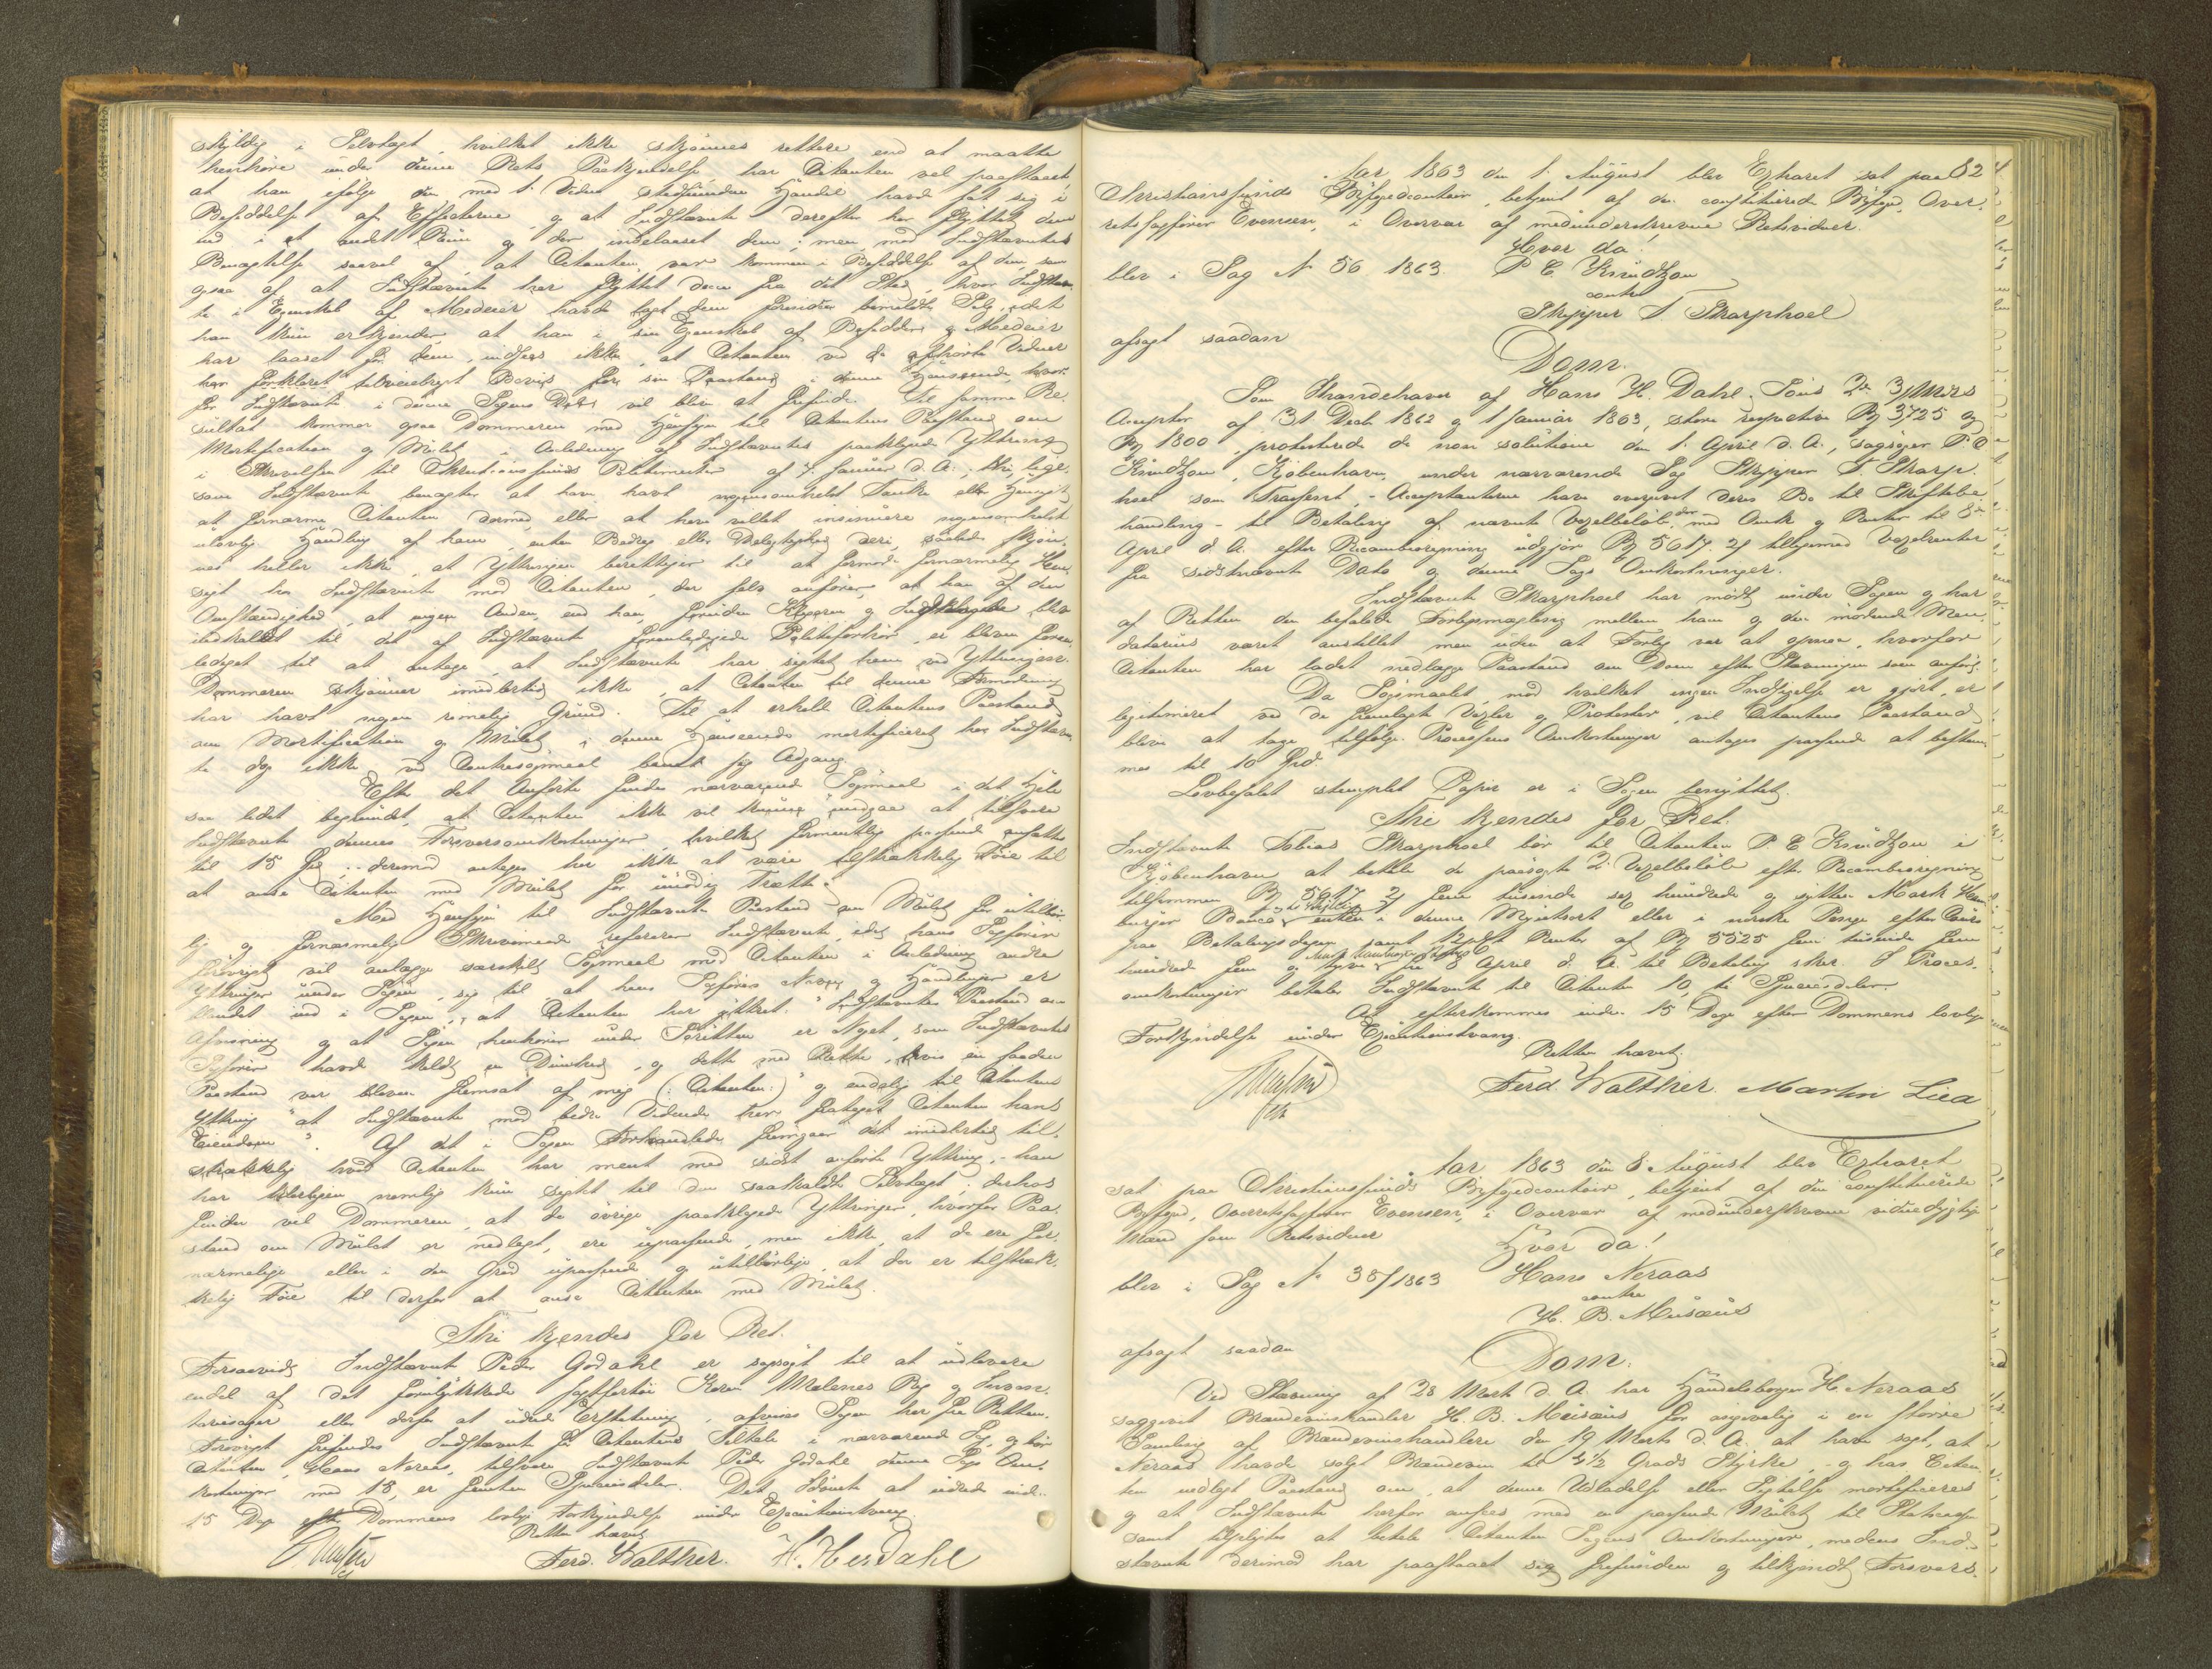 skyldig i Selvtægt, hvilket ikke skjønnes rettere end at maatte
henhøre under denne Rets Paakjendelse, har Citanten vel paastaaet
at han ifølge den med 1. Viden stedfundne Handel havde sat sig i
Besiddelse af Effecterne og at Indstævnte derefter har flyttet dem
ind i et andet Rum og der indelaaset dem; men mod Indstævntes
Benægtelse saavel af, at Citanten var kommen i Besiddelse af dem, som
ogsaa af at Indstævnte har flyttet dem fra det Sted, hvor Indstævn-
te i Egenskab af Medeier havde lagt dem forinden bemeldte Salg, idet
han kun erkjender at han i sin Egenskab af Besidder og Medeier
har laaset for dem, indsees ikke, at Citanten ved de afhørte Vidner
har forklaret tilveiebragt Bevis for sin Paastand i denne Henseende, hvor-
for Indstævnte i denne Sagens Deel vil blive at frifinde. Til samme Re-
sultat kommer ogsaa Dommeren med Hensyn til Citantens Paastand om
Mortification og Mulct i Anledning af Indstævntes paaklagede Yttring
i Skrivelsen til Christianssunds Politimester af 7. Januar d. A.; thi lige-
som Indstævnte benægter at have havt nogensomhelst Tanke eller Hensigt
at fornærme Citanten dermed eller at have villet insinuere nogensomhelst
ulovlig Handling af ham, enten Bedrag eller Delagtighed deri, saaledes skjøn-
nes heller ikke, at Yttringen berettiger til at formode fornærmelig Hen-
sigt hos Indstævnte mod Citanten, der selv anfører, at han af den
Omstændighed, at ingen Anden, end han, foruden Klageren og Indklagede blev
indkaldt til det af Indstævnte foranledigede Politiforhør, er bleven foran-
lediget til at antage, at Indstævnte har sigtet ham ved Yttringen.
Dommeren skjønner imidlertid ikke, at Citanten til denne Formodning
har havt nogen rimelig Grund. Til at erholde Citantens Paastand
om Mortification og Mulct i denne Henseende mortificeret har Indstævn-
te dog ikke ved Contrasøgsmaal banet sig Adgang.
Efter det Anførte findes nærværende Søgsmaal i det Hele
saa lidet begrundet, at Citanten ikke vil kunne undgaa at tilsvare
Indstævnte dennes Forsvarsomkostninger, hvilke formentlig passende ansættes
til 15 Spd; derimod antages her ikke at være tilstrækkelig Føie til
at anse Citanten med Mulct for unødig Trætte.
Med Hensyn til Indstævntes Paastand om Mulct for utilbør-
lig og fornærmelig Skrivemaade refererer Indstævnte, idet hans Sagfører
forøvrigt vil anlægge særskilt Søgsmaal mod Citanten i Anledning andre
Yttringer under Sagen, sig til "at hans Sagførers Navn og Handlinger er
blandet ind i Sagen", at Citanten har yttret: "Indstævntes Paastand om
Afvisning og at Sagen henhører under Søretten er Noget, som Indstævntes
Sagfører havde kaldt en Dumhed, og dette med Rette, hvis en saadan
Paastand var bleven fremsat af mig (: Citanten:)" og endelig til Citantens
Yttring "at Indstævnte mod bedre Vidende har frataget Citanten hans
Eiendom". Af det i Sagen Forhandlede fremgaar det imidlertid til-
strækkelig hvad Citanten har ment med sidst anførte Yttring, - han
har klarligen nemlig kun sigtet til den saakaldte Selvtægt; derhos
finder vel Dommeren, at de øvrige paaklagede Yttringer, hvorfor Paa-
stand om Mulct er nedlagt, ere upassende, men ikke, at de ere for-
nærmelige eller i den Grad upassende og utilbørlige, at der er tilstræk-
kelig Føie til derfor at anse Citanten med Mulct.
Thi kjendes for Ret.
Forsaavidt Indstævnte Peder Godahl er sagsøgt til at udlevere
endel af det forulykkede Jagtfartøi Karen Malenes Rig og Inven-
tariesager eller derfor at udrede Erstatning, afvises Sagen her fra Retten.
Forøvrigt frifindes Indstævnte for Citantens Tiltale i nærværende Sag, og bør
Citanten, Hans Neraas, tilsvare Indstævnte Peder Godahl denne Sags Om-
kostninger med 15, er femten Speciesdaler. Det Idømte at udrede inden
15 Dage efter Dommens lovlige Forkyndelse under Executionstvang.
Retten hævet.
Ferd. Walther. H. Hersdahl

82
Aar 1863 den 1. August blev Extraret sat paa
Christianssunds Byfogedcontoir, betjent af den constituerede Byfoged, Over-
retssagfører Evensen, i Overvær af medunderskrevne Retsvidner.
Hvor da!
blev i Sag No 56 1863. P E Knudtzon
contra
Skipper T. Skarphoel
afsagt saadan
Dom.
Som Ihændehaver af Hans H. Dahl Søns 2de 3/Mdrs
Accepter af 31 Decbr 1862 og 1 Januar 1863, store respective Bq 3725 og
Bq 1800, protesterede de non solutione den 1. April d. A., sagsøger P. E.
Knudtzon, Kjøbenhavn, under nærværende Sag Skipper T. Skarp-
hoel som Trassent, - Acceptanterne have overgivet deres Bo til Skiftebe-
handling - til Betaling af nævnte Vexelbeløb, der med Omk og Renter til 8de
April d. A. efter Recambioregning udgjør Bq 5617. 2 s tilligemed Vexelrenter
fra sidstnævnte Dato og denne Sags Omkostninger.
Indstævnte Skarphoel har mødt under Sagen og har
af Retten den befalede Forligsmægling mellem ham og den mødende Man-
datarius været anstillet men uden at Forlig var at opnaa, hvorfor
Citanten har ladet nedlægge Paastand om Dom efter Stævningen som anført.
Da Søgsmaalet, mod hvilket ingen Indsigelse er gjort, er
legitimeret ved de fremlagte Vexler og Protester, vil Citantens Paastand
blive at tage tilfølge. Processens Omkostninger antages passende at bestem-
mes til 10 Spd.
Lovbefalet stemplet Papir er i Sagen benyttet.
Thi kjendes for Ret.
Indstævnte Tobias Skarphoel bør til Citanten P. E. Knudtzon i
Kjøbenhavn at betale de paasøgte 2de Vexelbeløb efter Recambioregning
tilsammen Bq 5617 2 s fem tusinde sex hundrede og sytten Mark Ham-
burger Banco to Skilling enten i denne Myntsort eller i norske Penge efter Cours
paa Betalingsdagen samt 12 pCt Renter af Bq 5525 fem tusinde fem
hundrede fem og tyve Mark Hamburger Banco fra 8 April d. A. til Betaling sker. I Proces-
omkostninger betaler Indstævnte til Citanten 10, ti Speciesdaler.
At efterkommes inden 15 Dage efter Dommens lovlige
Forkyndelse under Executionstvang.
Retten hævet.
Ferd. Walther. Martin Liea

Aar 1863 den 8. August blev Extraret
sat paa Christianssunds Byfogedcontoir, betjent af den constituerede
Byfoged, Overretssagfører Evensen, i Overvær af medunderskrevne vidnedygtige
Mænd som Retsvidner
Hvor da!
blev i Sag No 38/1863 Hans Neraas
contra
H. B. Musæus
afsagt saadan
Dom.
Ved Stævning af 28 Marts d. A. har Handelsborger H. Neraas
saggivet Brændevinshandler H. B. Musæus for angivelig i en større
Samling af Brændevinshandlere den 19 Marts d. A. at have sagt, at
Neraas havde solgt Brændevin til 5½ Grads Styrke, - og har Citan-
ten nedlagt Paastand om, at denne Udladelse eller Sigtelse mortificeres
og at Indstævnte herfor ansees med en passende Mulct til Statscassen
samt tilpligtes at betale Citanten Sagens Omkostninger, medens Ind-
stævnte derimod har paastaaet sig frifunden og tilkjendt Forsvars-